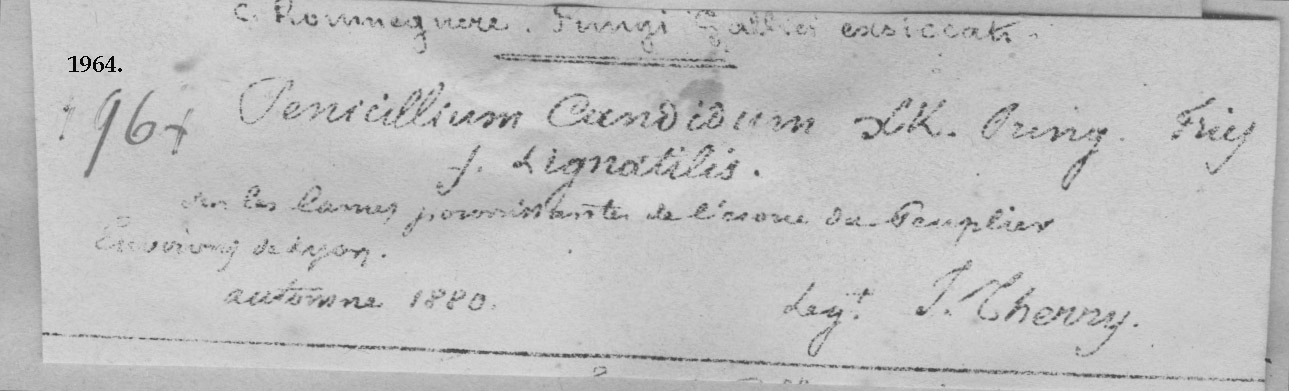 C. Roumeguere. Fungi Gallici exsiccati.
1964.
1964 Penicillium Candidum LK. Pring. Fries
f. Lignatilis.
sur les lames pourrissantes de l'écorce du Peuplier
Environs de Lyon.
automne 1880.
Legt. J. Therry.